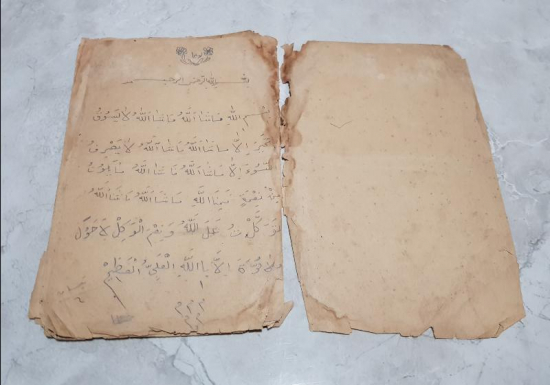 بسم الله الرحمن الرحيم
بسم الله ماشاالله ماشاالله لا يسوق
الا ماشاالله ماشاالله لا يصرف
السوء الا ماشاالله ماشاالله
من نعمة فمن الله ماشاالله ماشاالله
على الله ونعم الوكيل لا حول
ولا قوة الا بالله العلي العظيم